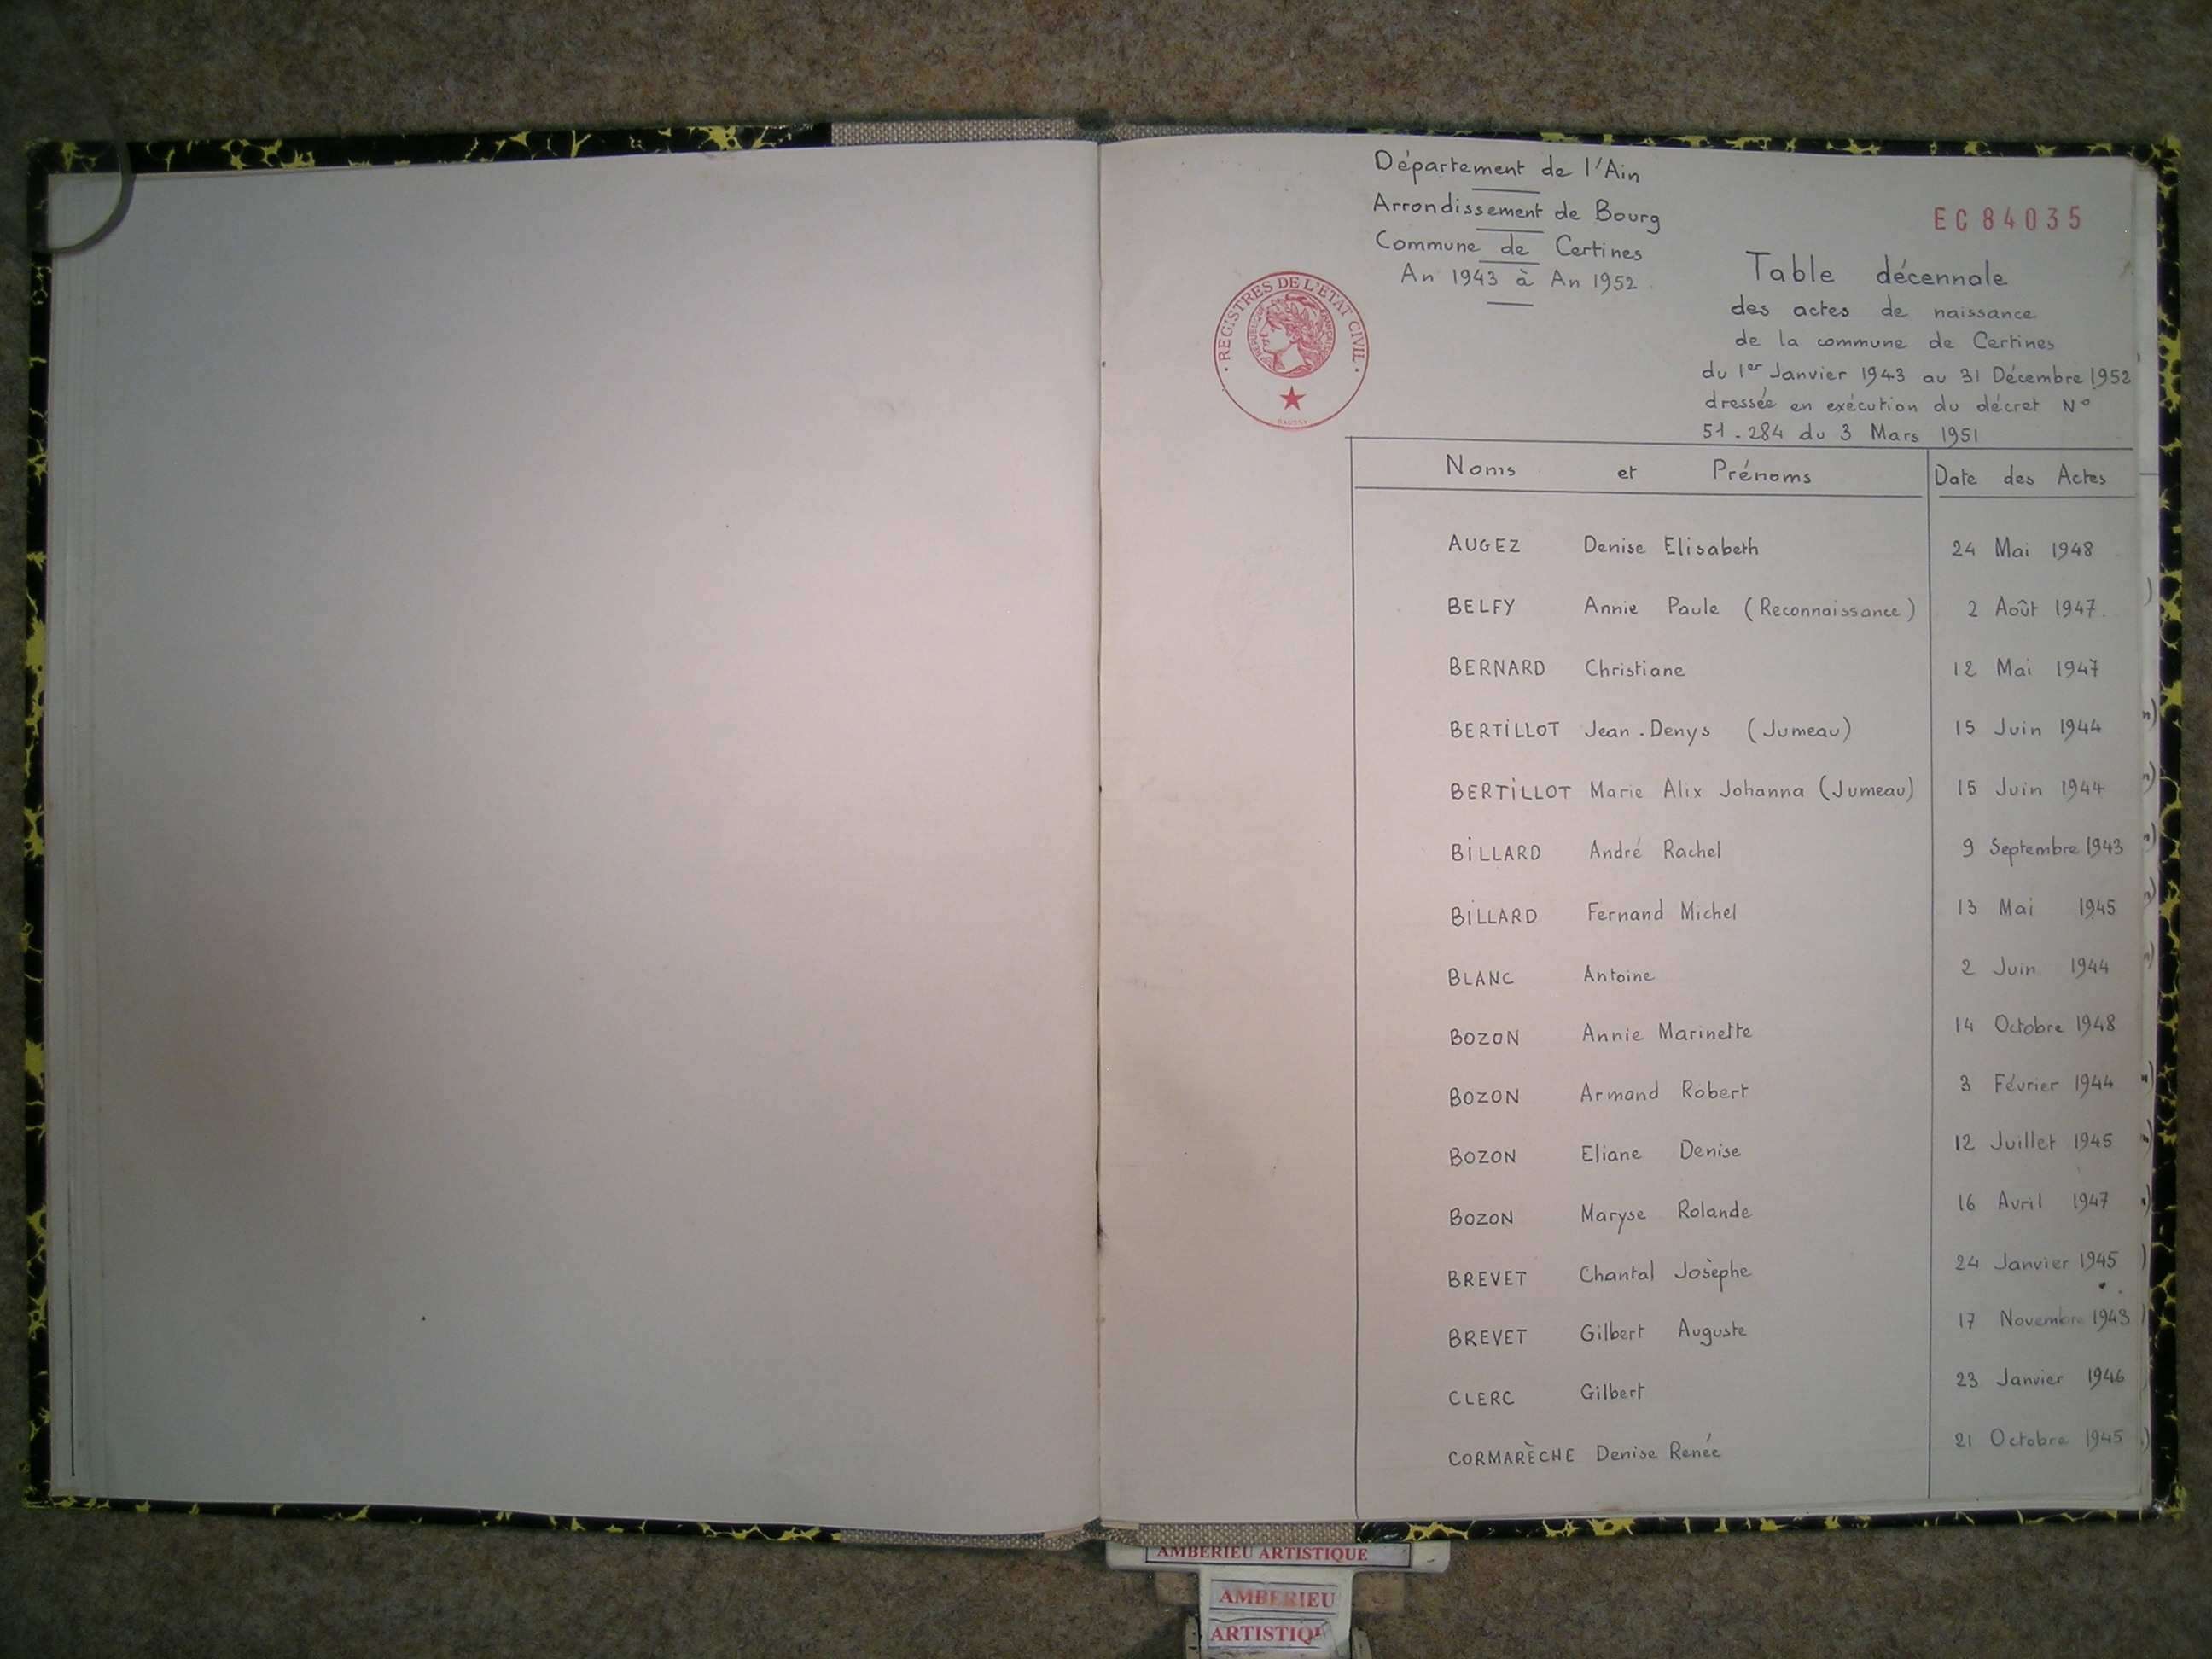 Département de l'Ain
Arrondissement de Bourg
Commune de Certines
An 1943 à An 1952
REGISTRES DE L'ETAT CIVIL
EC 84035
Table décennale
des actes de naissance
de la commune de Certines
du 1er Janvier 1943 au 31 Décembre 1952
dressée en exécution du décret N°
51.284 du 3 Mars 1951
Noms et Prénoms Date des Actes
AUGEZ Denise Elisabeth 24 Mai 1948
BELFY Annie Paule (Reconnaissance) 2 Août 1947
BERNARD Christiane 12 Mai 1947
BERTiLLOT Jean-Denys (Jumeau) 15 Juin 1944
BERTiLLOT Marie Alix Johanna (Jumeau) 15 Juin 1944
BiLLARD André Rachel 9 Septembre 1943
BiLLARD Fernand Michel 13 Mai 1945
BLANC Antoine 2 Juin 1944
BOZON Annie Marinette 14 Octobre 1948
BOZON Armand Robert 3 Février 1944
BOZON Eliane Denise 12 Juillet 1945
BOZON Maryse Rolande 16 Avril 1947
BREVET Chantal Josèphe 24 Janvier 1945
BREVET Gilbert Auguste 17 Novembre 1943
CLERC Gilbert 23 Janvier 1946
CORMARÈCHE Denise Renée 21 Octobre 1945
AMBERIEU ARTISTIQUE
AMBERIEU
ARTISTIQU